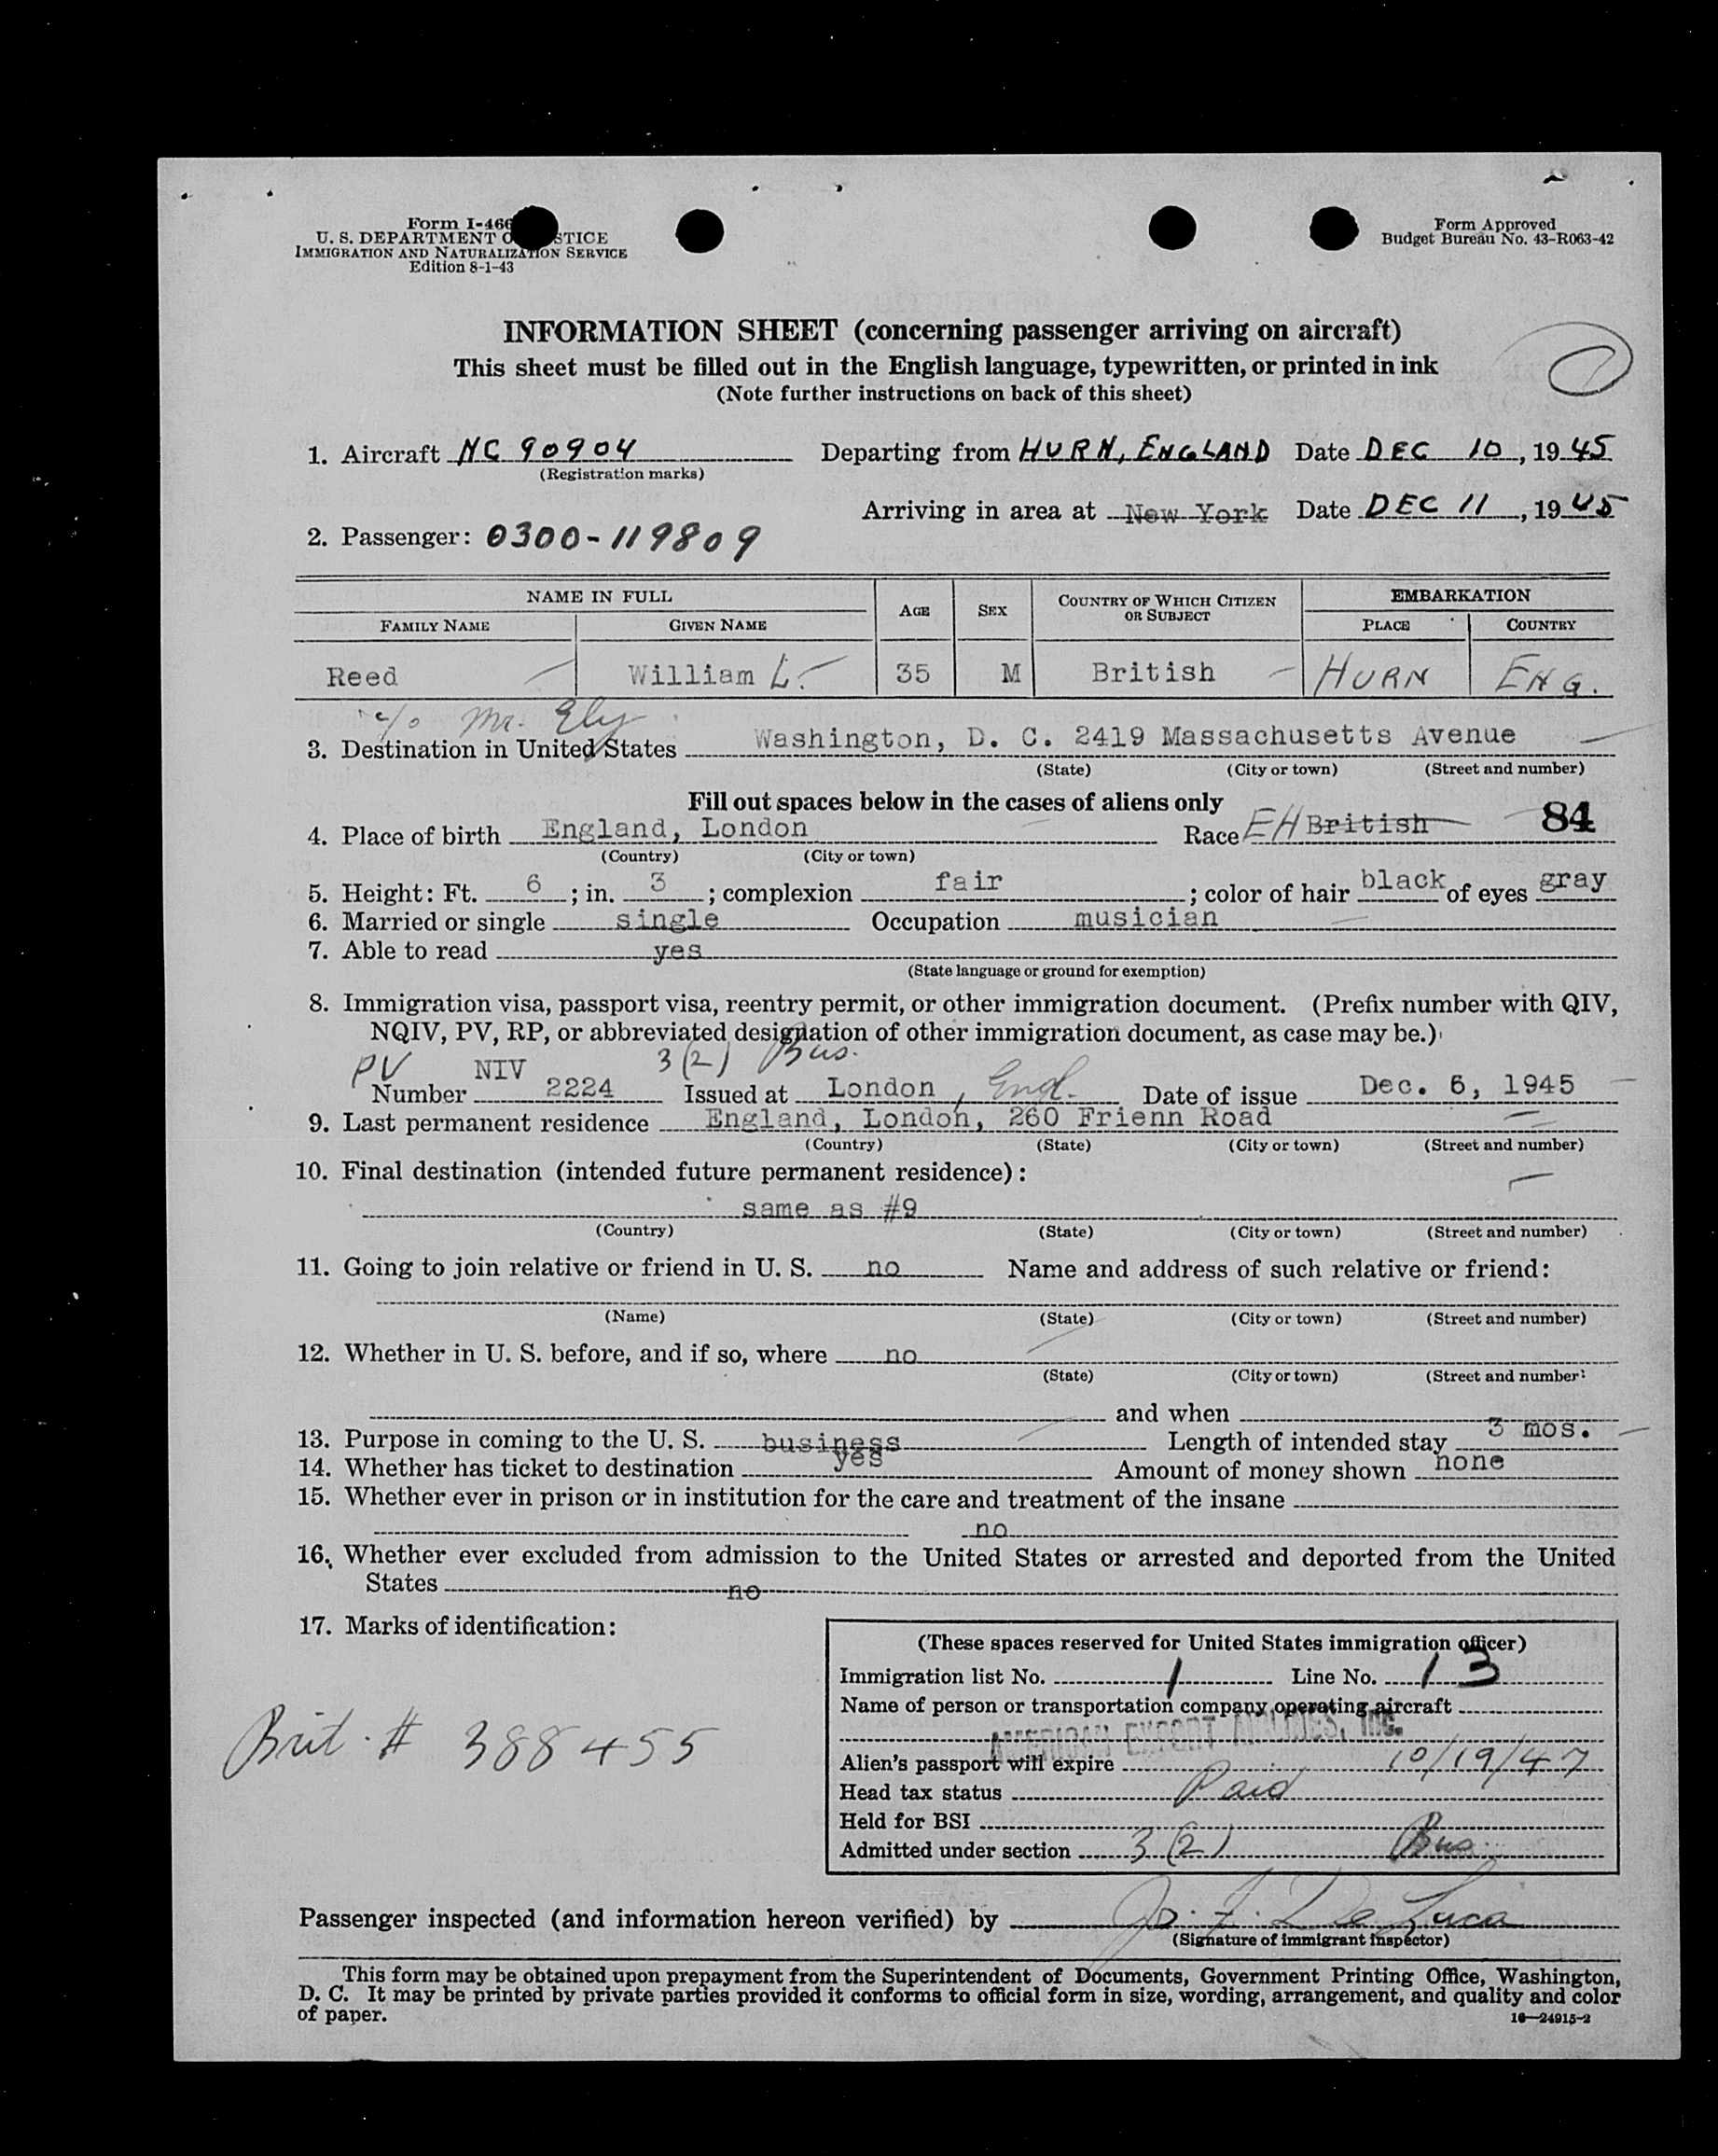 Form I-466
U. S. DEPARTMENT O STICE
IMMIGRATION AND NATURALIZATION SERVICE
Edition 8-1-43
Form Approved
Budget Bureau No. 43-R063-42
INFORMATION SHEET (concerning passenger arriving on aircraft)
This sheet must be filled out in the English language, typewritten, or printed in ink
(Note further instructions on back of this sheet)
1. Aircraft NC 90904 Departing from HURN, ENGLAND Date DEC 10, 1945
(Registration marks)
Arriving in area at New York Date DEC 11, 1945
2. Passenger: 0300-119809
NAME IN FULL AGE SEX COUNTRY OF WHICH CITIZEN OR SUBJECT EMBARKATION
FAMILY NAME GIVEN NAME PLACE COUNTRY
Reed William L. 35 M British HURN ENG.
c/o Mr. Ely
3. Destination in United States Washington, D. C. 2419 Massachusetts Avenue
(State) (City or town) (Street and number)
Fill out spaces below in the cases of aliens only
4. Place of birth England, London Race British 84
(Country) (City or town)
5. Height: Ft. 6; in. 3; complexion fair; color of hair black of eyes gray
6. Married or single single Occupation musician
7. Able to read yes
(State language or ground for exemption)
8. Immigration visa, passport visa, reentry permit, or other immigration document. (Prefix number with QIV,
NQIV, PV, RP, or abbreviated designation of other immigration document, as case may be.)
PV NIV 3(2) Bus.
Number 2224 Issued at London, Engl. Date of issue Dec. 6, 1945
9. Last permanent residence England, London, 260 Frienn Road
(Country) (State) (City or town) (Street and number)
10. Final destination (intended future permanent residence):
same as #9
(Country) (State) (City or town) (Street and number)
11. Going to join relative or friend in U. S. no Name and address of such relative or friend:
(Name) (State) (City or town) (Street and number)
12. Whether in U. S. before, and if so, where no
(State) (City or town) (Street and number)
and when
13. Purpose in coming to the U. S. business Length of intended stay 3 mos.
14. Whether has ticket to destination yes Amount of money shown none
15. Whether ever in prison or in institution for the care and treatment of the insane
no
16. Whether ever excluded from admission to the United States or arrested and deported from the United
States no
17. Marks of identification:
Brit. # 388455
(These spaces reserved for United States immigration officer)
Immigration list No. 1 Line No. 13
Name of person or transportation company operating aircraft
AMERICAN EXPORT AIRLINES, INC.
Alien's passport will expire 10/19/47
Head tax status Paid
Held for BSI
Admitted under section 3(2) Bus.
Passenger inspected (and information hereon verified) by Jo. F. De Luca
(Signature of immigrant inspector)
This form may be obtained upon prepayment from the Superintendent of Documents, Government Printing Office, Washington,
D. C. It may be printed by private parties provided it conforms to official form in size, wording, arrangement, and quality and color
of paper.
16—24915-2